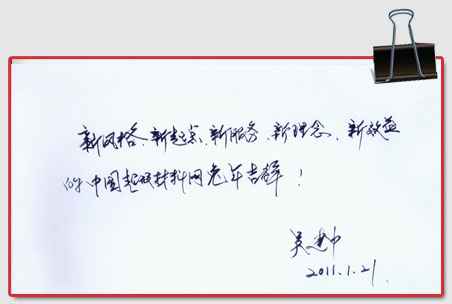 新风格、新起点、新服务、新理念、新效益
的中国超硬材料网兔年吉祥！
吴建中
2011.1.21